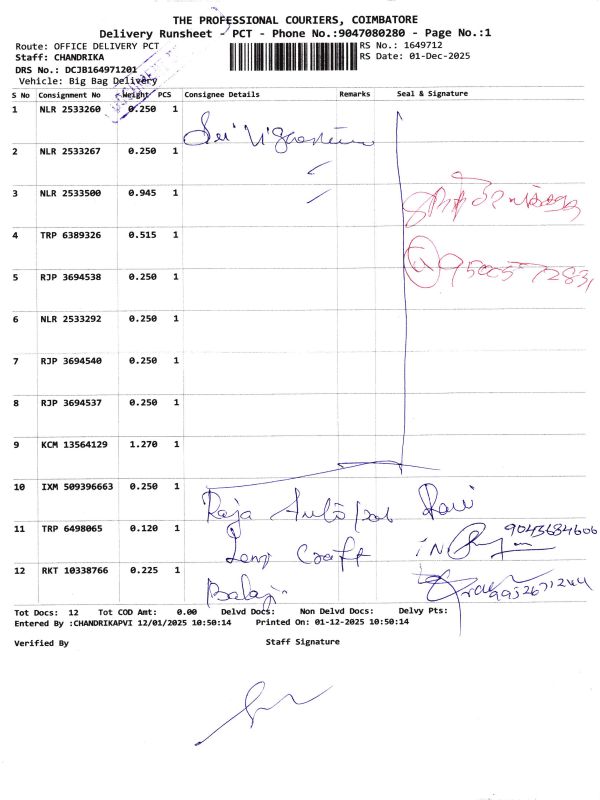 THE PROFESSIONAL COURIERS, COIMBATORE
Delivery Runsheet - PCT - Phone No.:9047080280 - Page No.:1
Route: OFFICE DELIVERY PCT RS No.: 1649712
Staff: CHANDRIKA RS Date: 01-Dec-2025
DRS No.: DCJB164971201
Vehicle: Big Bag Delivery
S No Consignment No Weight PCS Consignee Details Remarks Seal & Signature
1 NLR 2533260 0.250 1
2 NLR 2533267 0.250 1
3 NLR 2533500 0.945 1
4 TRP 6389326 0.515 1
5 RJP 3694538 0.250 1
6 NLR 2533292 0.250 1
7 RJP 3694540 0.250 1
8 RJP 3694537 0.250 1
9 KCM 13564129 1.270 1
10 IXM 509396663 0.250 1 Raja
11 TRP 6498065 0.120 1 Craft 9043684606
12 RKT 10338766 0.225 1 Balaji
Tot Docs: 12 Tot COD Amt: 0.00 Delvd Docs: Non Delvd Docs: Delvy Pts:
Entered By :CHANDRIKAPVI 12/01/2025 10:50:14 Printed On: 01-12-2025 10:50:14
Verified By Staff Signature